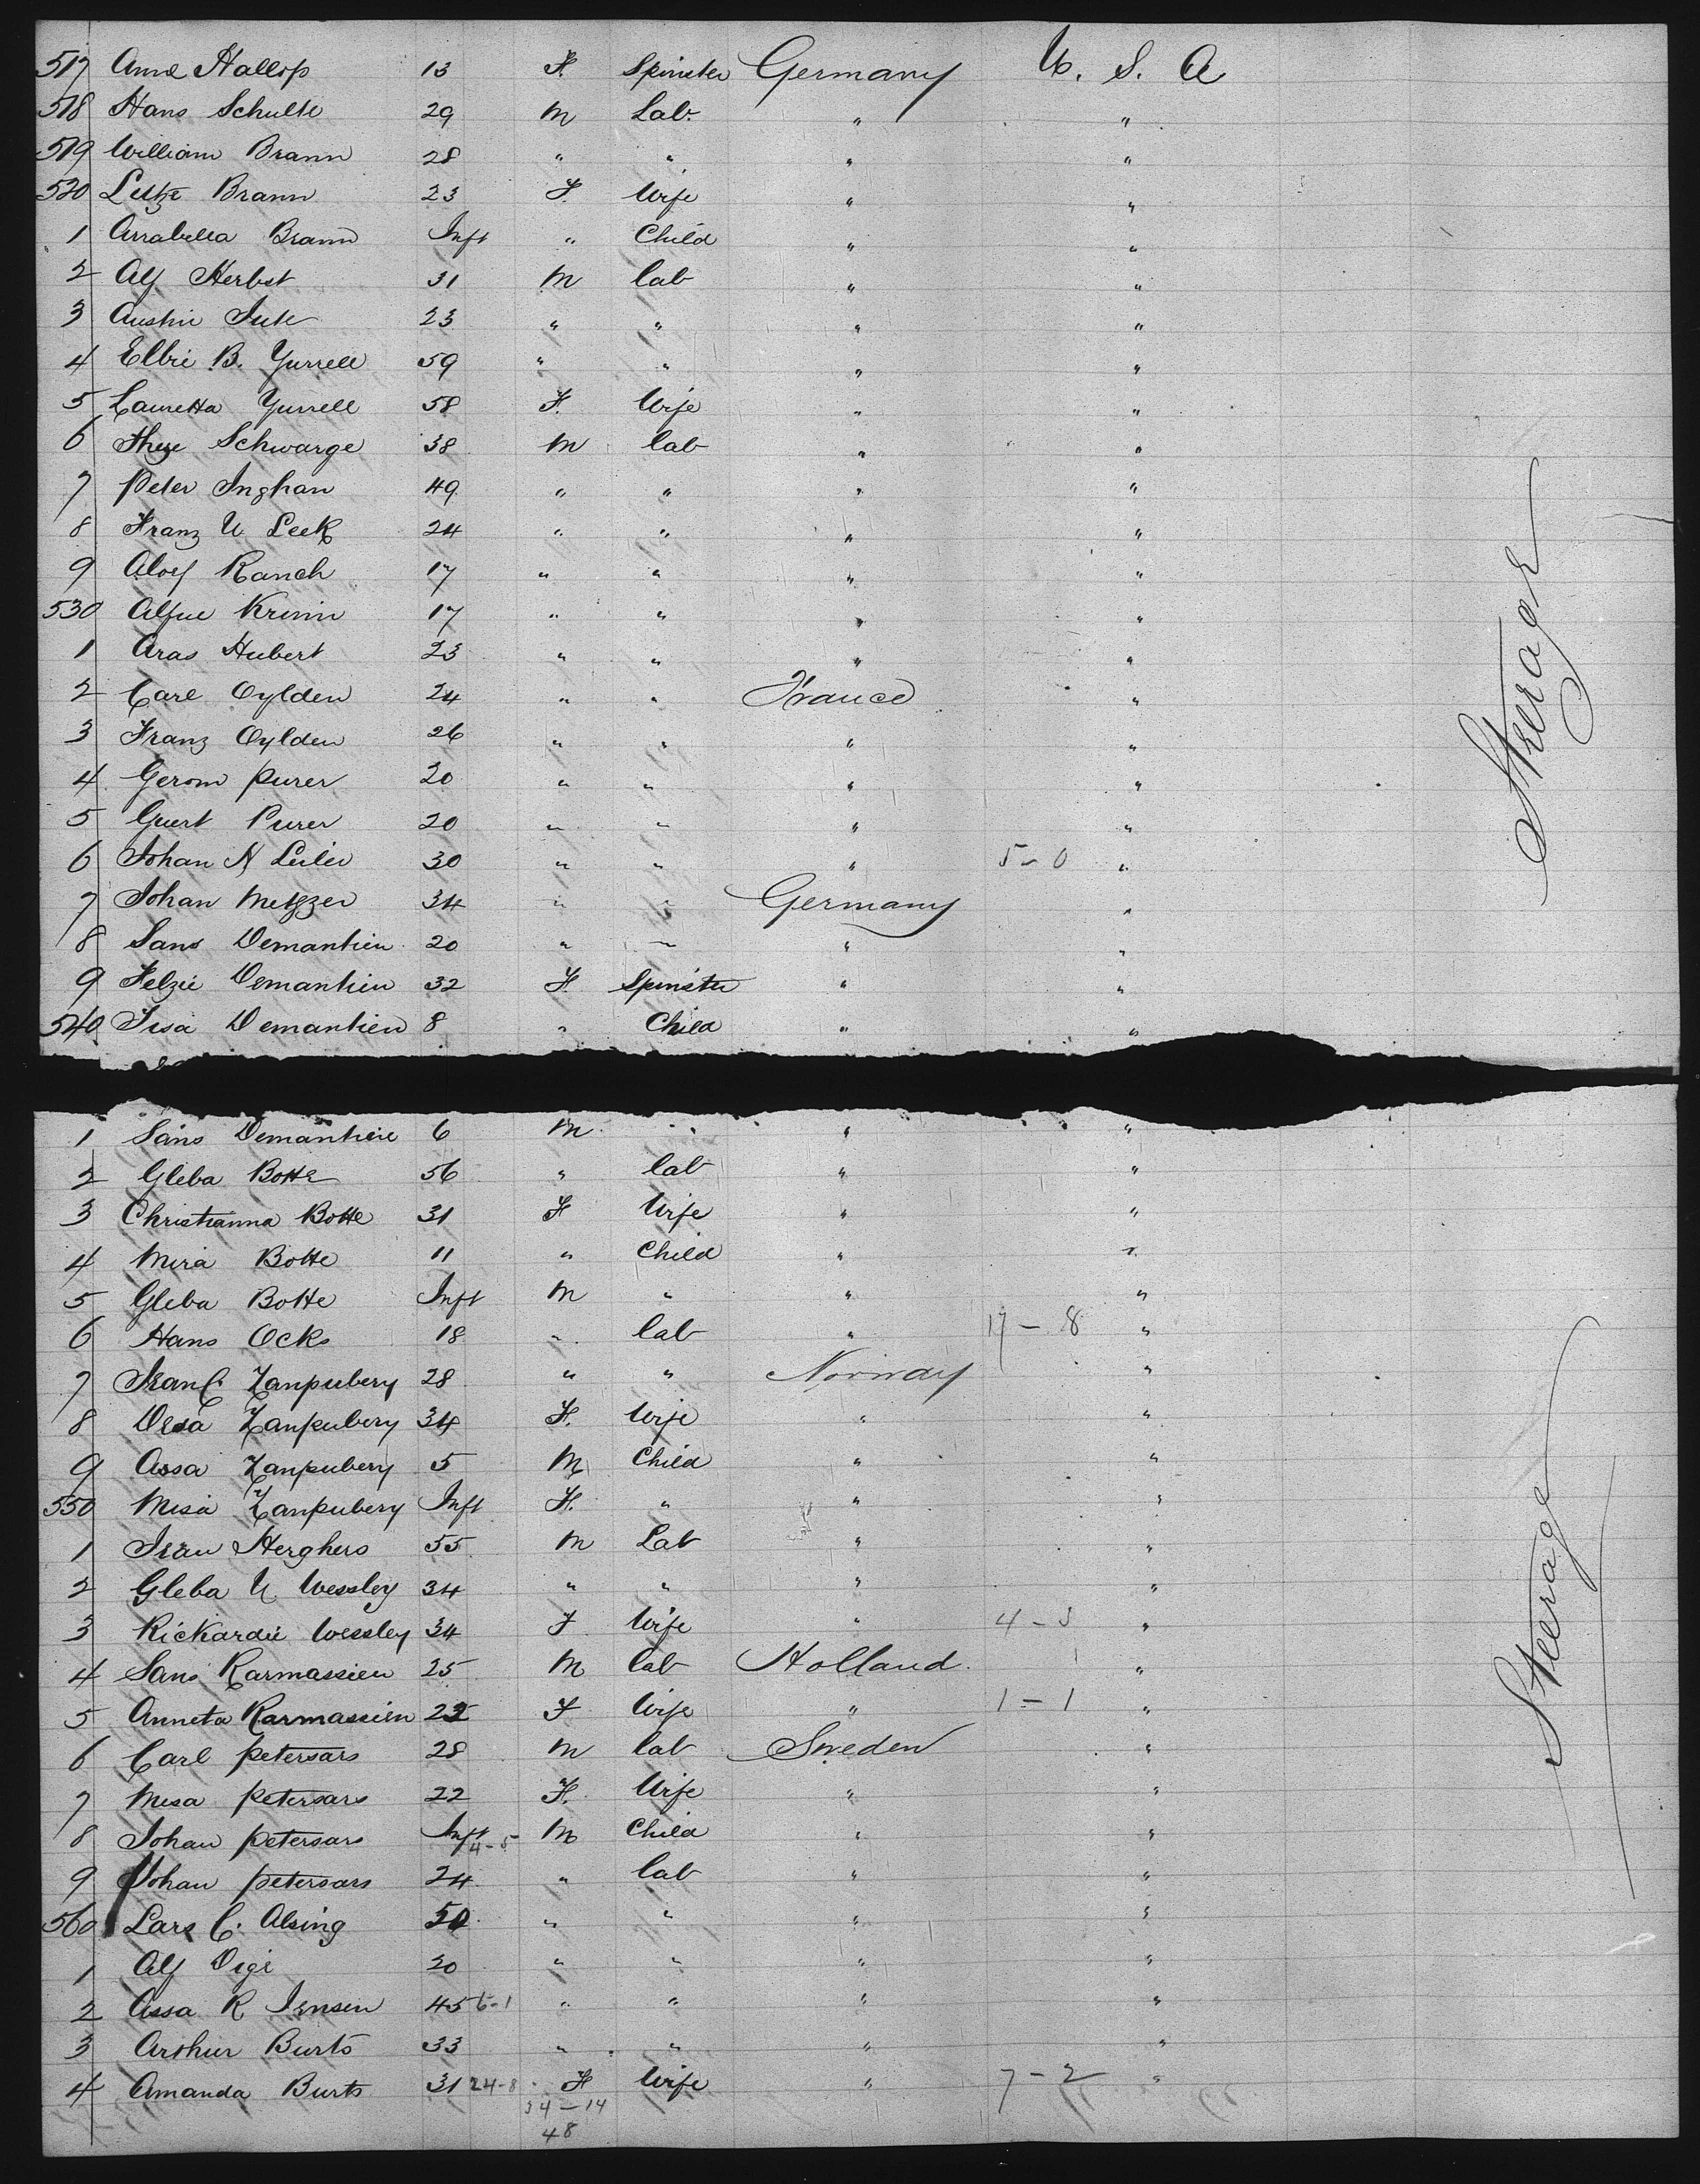 517 Anne Hallop 13 F. Spinster Germany U. S. A
518 Hans Schulte 29 M Lab. " "
519 William Brann 28 " " " "
520 Brann 23 F. Wife " "
1 Arrabella Brann Inft " Child " "
2 Alf Herbst 31 M Lab " "
3 Austin 23 " " " "
4 Elbri B. Yurrell 59 " " " "
5 Lauretta Yurrell 58 F. Wife " "
6 Schwarge 38 M Lab " "
7 Peter Inghan 49 " " " "
8 Franz U Leek 24 " " " "
9 Aloy Ranch 17 " " " "
530 Krimm 17 " " " "
1 Aras Hubert 23 " " " "
2 Carl Oylden 24 " " France "
3 Franz Oylden 26 " " " "
4 Gerom Purer 20 " " " "
5 Guert Purer 20 " " " "
6 Johan N 30 " " " 5-0 "
7 Johan Metzger 34 " " Germany "
8 Sans Demantien 20 " " " "
9 Felzie Demantien 32 F. Spinster " "
540 Demantien 8 " Child " "
Steerage
1 Sans Demantien 6 M " " "
2 Gleba Botte 56 " Lab " "
3 Christianna Botte 31 F Wife " "
4 Mira Botte 11 " Child " "
5 Gleba Botte Inft M " " "
6 Hans Ocks 18 " Lab " 17-8 "
7 Zanpubery 28 " " Norway "
8 Zanpubery 34 F. Wife " "
9 Assa Zanpubery 5 M Child " "
550 Misa Zanpubery Inft F. " " "
1 Herghers 55 M Lab " "
2 Gleba U Wessley 34 " " " "
3 Rickardie Wessley 34 F Wife " 4-3 "
4 Sans Rarmassien 25 M Lab Holland "
5 Anneta Rarmassien 22 F Wife " 1-1 "
6 Carl Petersars 28 M Lab Sweden "
7 Mesa Petersars 22 F. Wife " "
8 Johan Petersars Inft 4-5 M Child " "
9 Johan Petersars 24 " Lab " "
560 Lars C. Alsing 50 " " " "
1 Alf Digi 20 " " " "
2 Assa R Jensen 45 6-1 " " " "
3 Arthur Burts 33 " " " "
4 Amanda Burts 31 24-8 F Wife " 7-2 "
34-14
48
Steerage